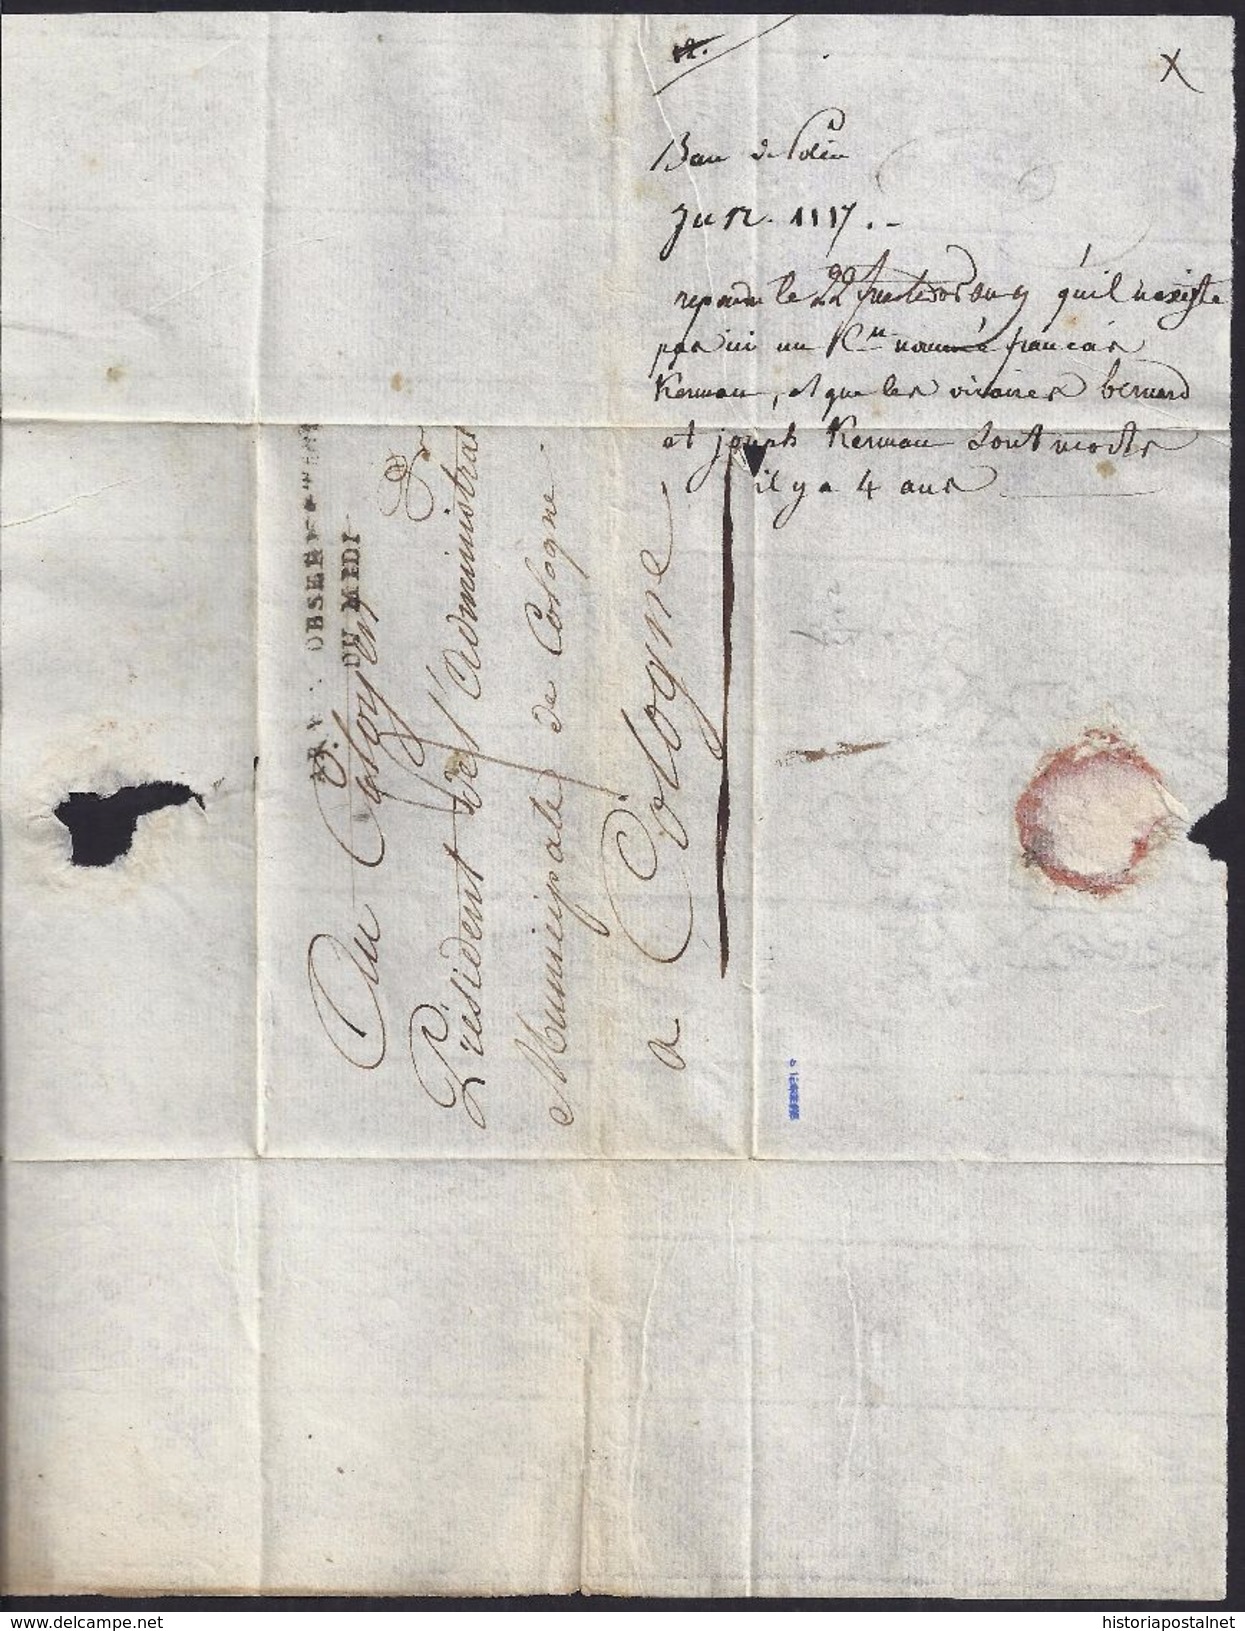 12.
X
Bau de Polic
Ju 12. 1117. -
repondu le 22 fructidor an 9 qu'il n'existe
pas ici un Cen nommé francois
Kerman, et que les vicaires bernard
et joseph Kerman sont morts
il y a 4 ans
ARM. OBSERV
DU MIDI
Au Citoyen
Président de l'Administra
Municipale de Cologne
a Cologne
historiapostalnet